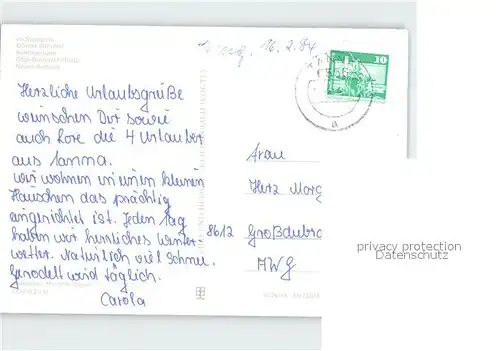 16.2.84
10
Herzliche Urlaubsgrüße
wünschen Dir sowie
auch Lore die 4 Urlauber
aus Tamma.
Wir wohnen in einem kleinen
Häuschen das prächtig
eingerichtet ist. Jeden Tag
haben wir herrliches Winter-
wetter. Natürlich viel Schnee.
Gerodelt wird täglich.
Carola
Frau
Herz Marg
8612 Großdubra
MWG
privacy protection
Datenschutz